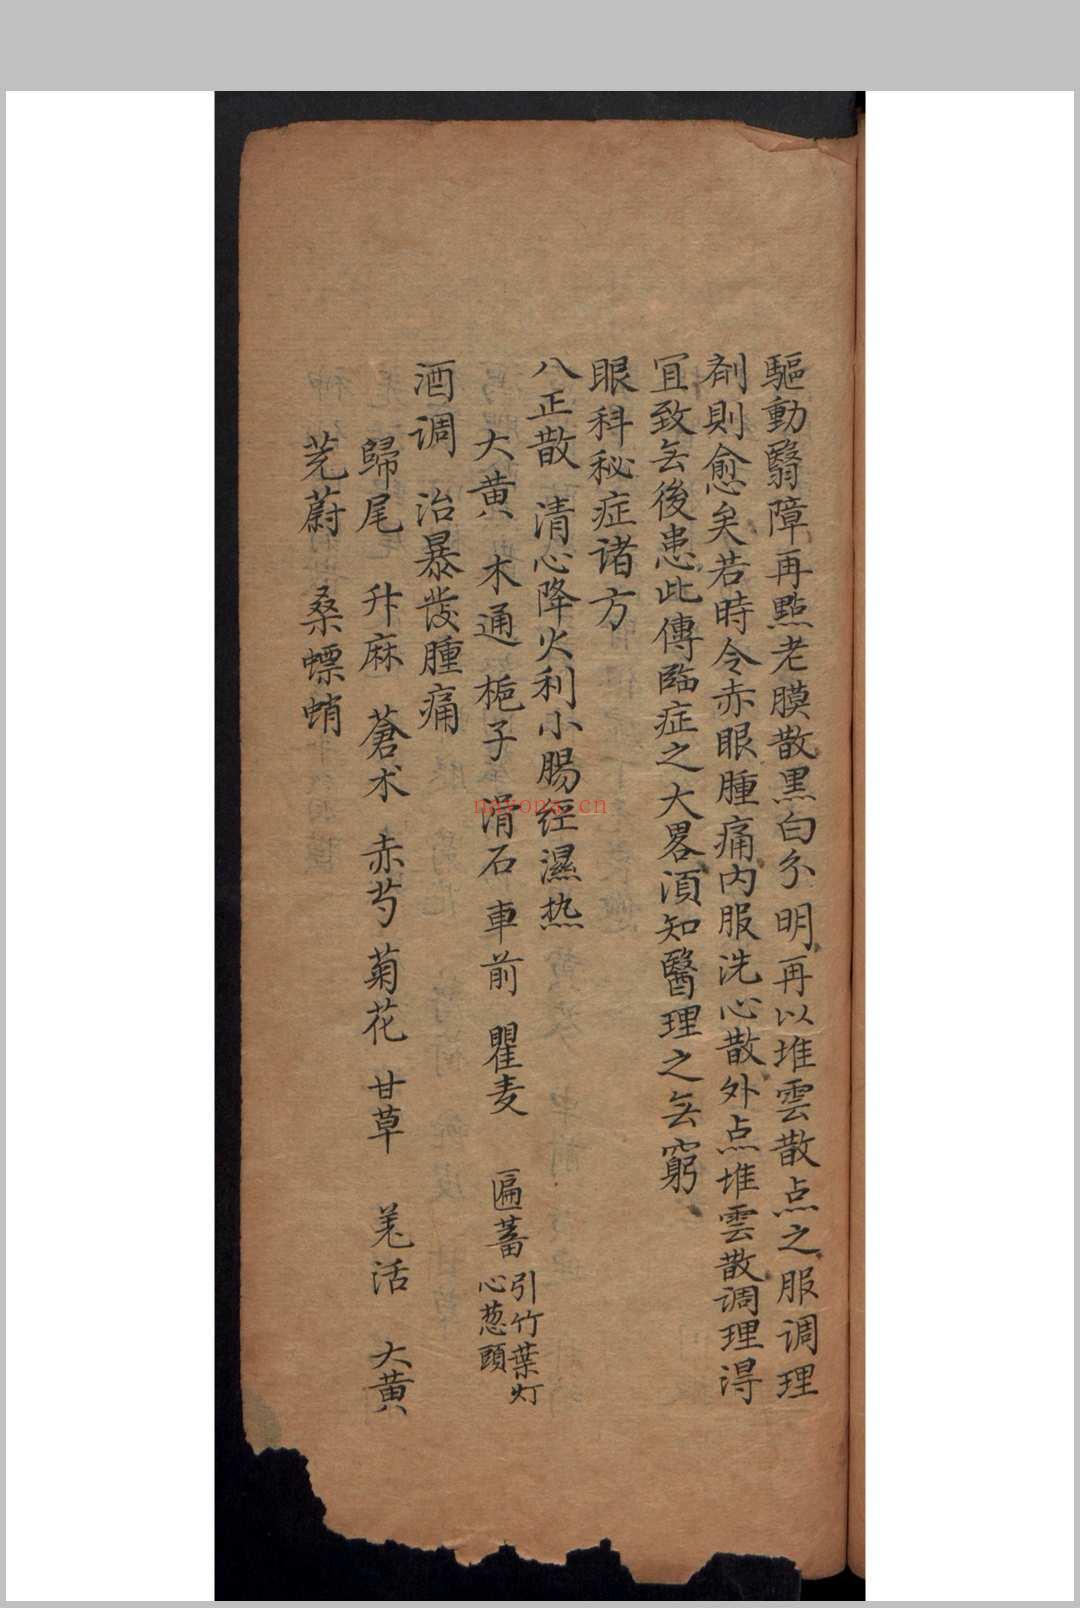 驅動翳障再點老膜散黑白分明再以堆雲散点之服调理
剤則愈矣若時令赤眼腫痛内服洗心散外点堆雲散调理得
冝致无後患此傳臨症之大畧湏知醫理之无窮
眼科秘症诸方
八正散 清心降火利小腸經濕热
大黄 木通 梔子 滑石 車前 瞿麦 匾蓄 引竹葉灯
心葱頭
酒调 治暴發腫痛
歸尾 升麻 蒼术 赤芍 菊花 甘草 羌活 大黄
茺蔚 桑螵蛸
nayona.cn